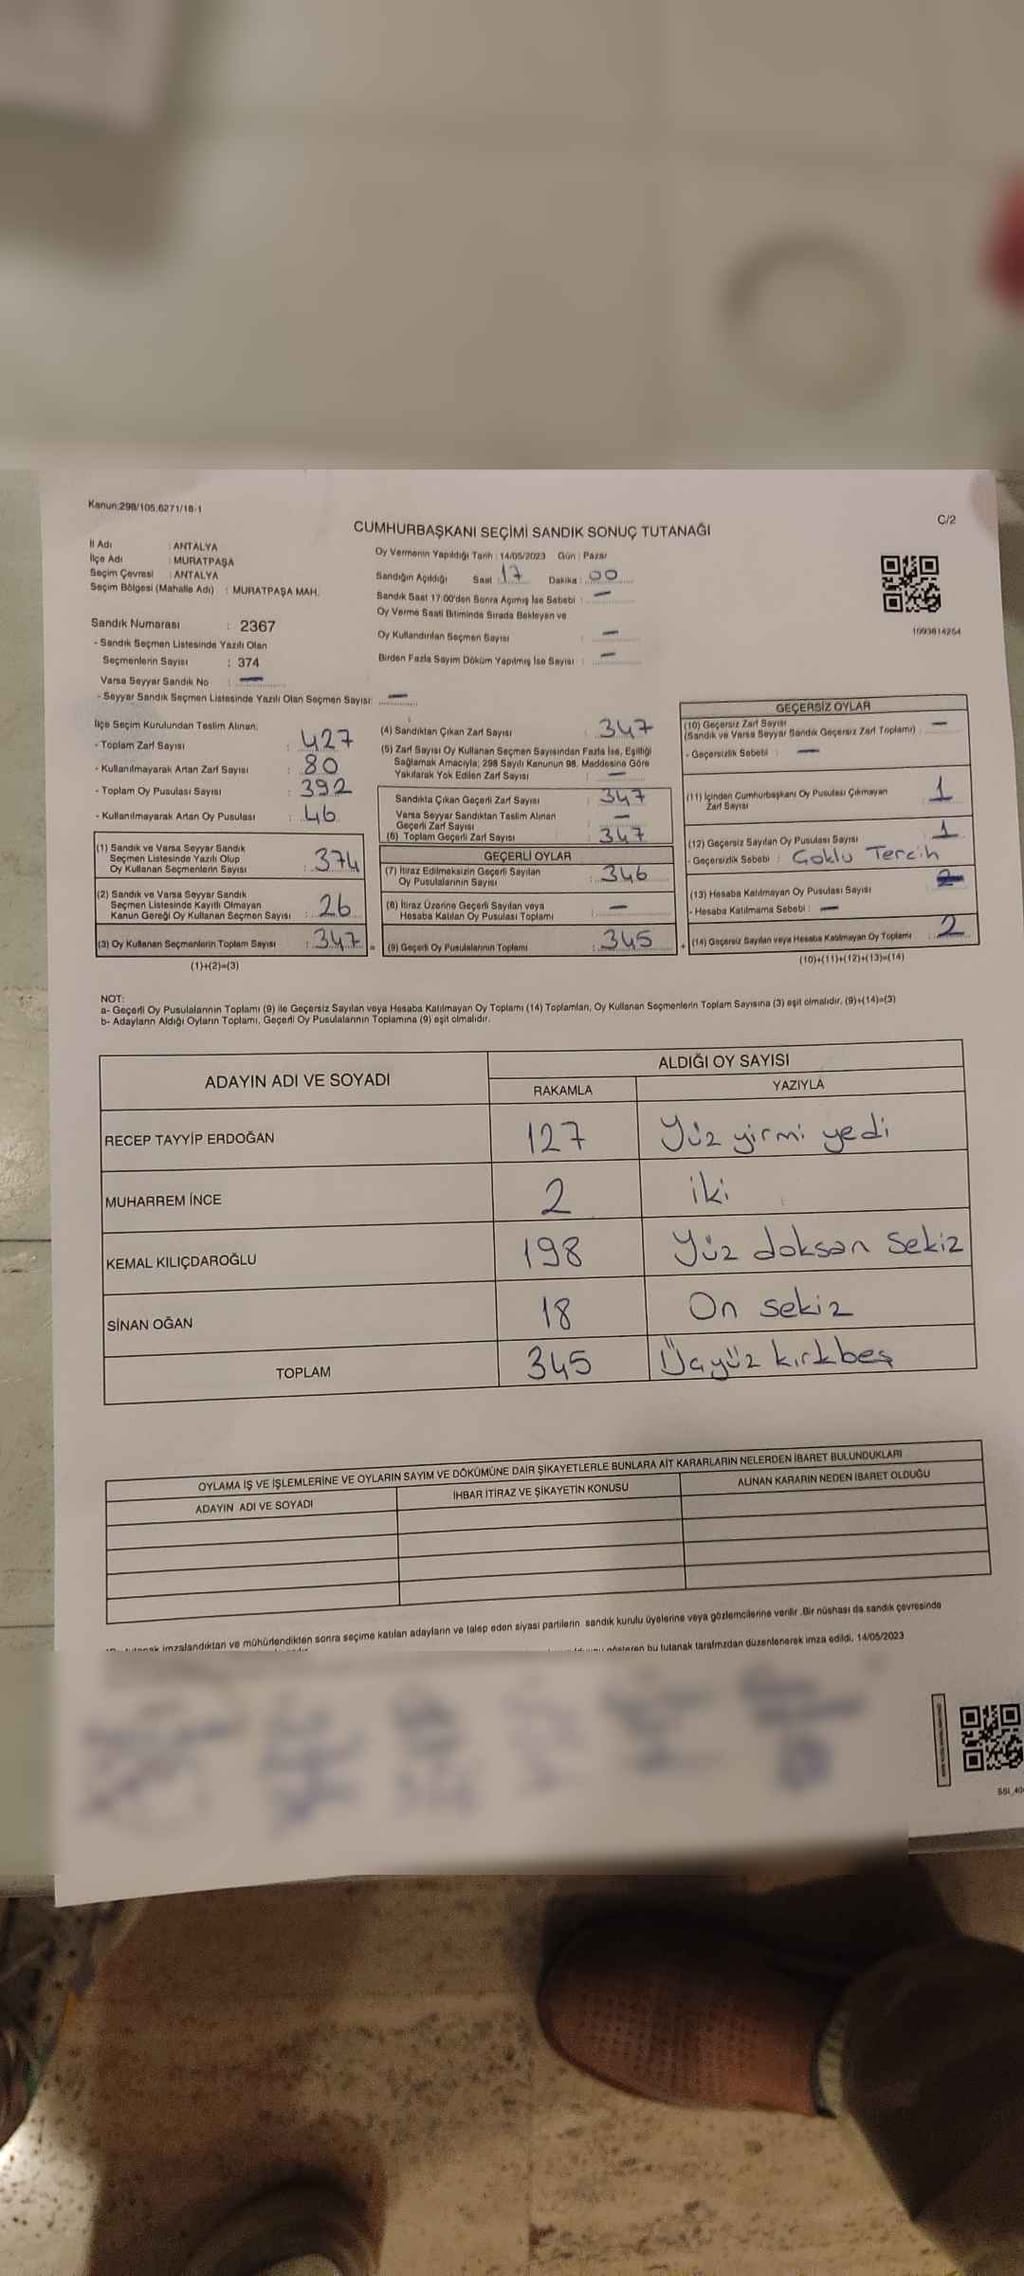 Kanun:298/105,6271/18-1
C/2
CUMHURBAŞKANI SEÇİMİ SANDIK SONUÇ TUTANAĞI
İl Adı : ANTALYA
İlçe Adı : MURATPAŞA
Seçim Çevresi : ANTALYA
Seçim Bölgesi (Mahalle Adı) : MURATPAŞA MAH.
Oy Vermenin Yapıldığı Tarih : 14/05/2023 Gün : Pazar
Sandığın Açıldığı Saat : 17 Dakika : 00
Sandık Saat 17.00'den Sonra Açımış İse Sebebi : —
Oy Verme Saati Bitiminde Sırada Bekleyen ve
Oy Kullandırılan Seçmen Sayısı : —
Birden Fazla Sayım Döküm Yapılmış İse Sayısı : —
1093614264
Sandık Numarası : 2367
- Sandık Seçmen Listesinde Yazılı Olan
Seçmenlerin Sayısı : 374
Varsa Seyyar Sandık No : —
- Seyyar Sandık Seçmen Listesinde Yazılı Olan Seçmen Sayısı: —
İlçe Seçim Kurulundan Teslim Alınan;
- Toplam Zarf Sayısı : 427
- Kullanılmayarak Artan Zarf Sayısı : 80
- Toplam Oy Pusulası Sayısı : 392
- Kullanılmayarak Artan Oy Pusulası : 46
(1) Sandık ve Varsa Seyyar Sandık
Seçmen Listesinde Yazılı Olup
Oy Kullanan Seçmenlerin Sayısı : 374
(2) Sandık ve Varsa Seyyar Sandık
Seçmen Listesinde Kayıtlı Olmayan
Kanun Gereği Oy Kullanan Seçmen Sayısı : 26
(3) Oy Kullanan Seçmenlerin Toplam Sayısı : 347 =
(1)+(2)=(3)
(4) Sandıktan Çıkan Zarf Sayısı : 347
(5) Zarf Sayısı Oy Kullanan Seçmen Sayısından Fazla İse, Eşitliği
Sağlamak Amacıyla; 298 Sayılı Kanunun 98. Maddesine Göre
Yakılarak Yok Edilen Zarf Sayısı : —
Sandıkta Çıkan Geçerli Zarf Sayısı : 347
Varsa Seyyar Sandıktan Teslim Alınan
Geçerli Zarf Sayısı : —
(6) Toplam Geçerli Zarf Sayısı : 347
GEÇERLİ OYLAR
(7) İtiraz Edilmeksizin Geçerli Sayılan
Oy Pusulalarının Sayısı : 346
(8) İtiraz Üzerine Geçerli Sayılan veya
Hesaba Katılan Oy Pusulası Toplamı : —
(9) Geçerli Oy Pusulalarının Toplamı : 345 +
GEÇERSİZ OYLAR
(10) Geçersiz Zarf Sayısı
(Sandık ve Varsa Seyyar Sandık Geçersiz Zarf Toplamı) : —
- Geçersizlik Sebebi : —
(11) İçinden Cumhurbaşkanı Oy Pusulası Çıkmayan
Zarf Sayısı : 1
(12) Geçersiz Sayılan Oy Pusulası Sayısı : 1
- Geçersizlik Sebebi : Çoklu Tercih
(13) Hesaba Katılmayan Oy Pusulası Sayısı :
- Hesaba Katılmama Sebebi : —
(14) Geçersiz Sayılan veya Hesaba Katılmayan Oy Toplamı : 2
(10)+(11)+(12)+(13)=(14)
NOT:
a- Geçerli Oy Pusulalarının Toplamı (9) ile Geçersiz Sayılan veya Hesaba Katılmayan Oy Toplamı (14) Toplamları, Oy Kullanan Seçmenlerin Toplam Sayısına (3) eşit olmalıdır. (9)+(14)=(3)
b- Adayların Aldığı Oyların Toplamı, Geçerli Oy Pusulalarının Toplamına (9) eşit olmalıdır.
ADAYIN ADI VE SOYADI
ALDIĞI OY SAYISI
RAKAMLA YAZIYLA
RECEP TAYYİP ERDOĞAN 127 Yüz yirmi yedi
MUHARREM İNCE 2 iki
KEMAL KILIÇDAROĞLU 198 Yüz doksan sekiz
SİNAN OĞAN 18 On sekiz
TOPLAM 345 Üçyüz kırkbeş
OYLAMA İŞ VE İŞLEMLERİNE VE OYLARIN SAYIM VE DÖKÜMÜNE DAİR ŞİKAYETLERLE BUNLARA AİT KARARLARIN NELERDEN İBARET BULUNDUKLARI
ADAYIN ADI VE SOYADI İHBAR İTİRAZ VE ŞİKAYETİN KONUSU ALINAN KARARIN NEDEN İBARET OLDUĞU
imzalandıktan ve mühürlendikten sonra seçime katılan adayların ve talep eden siyasi partilerin sandık kurulu üyelerine veya gözlemcilerine verilir .Bir nüshası da sandık çevresinde
gösteren bu tutanak tarafımızdan düzenlenerek imza edildi. 14/05/2023